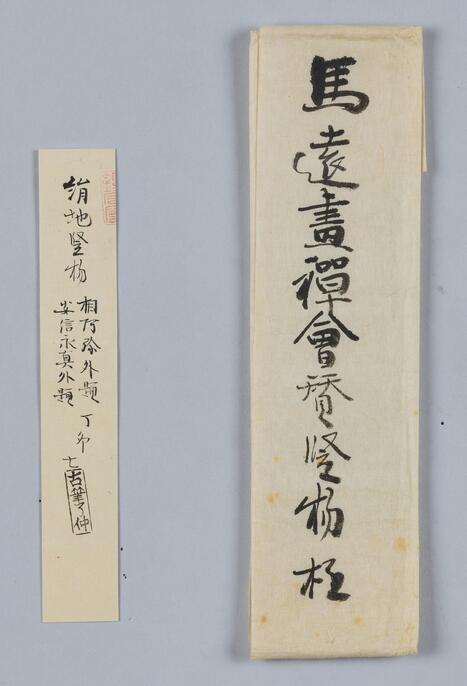 馬遠畫禪會賛竪物極
絹地竪物
相阿弥外題
安信永真外題
丁卯
七
古筆了仲